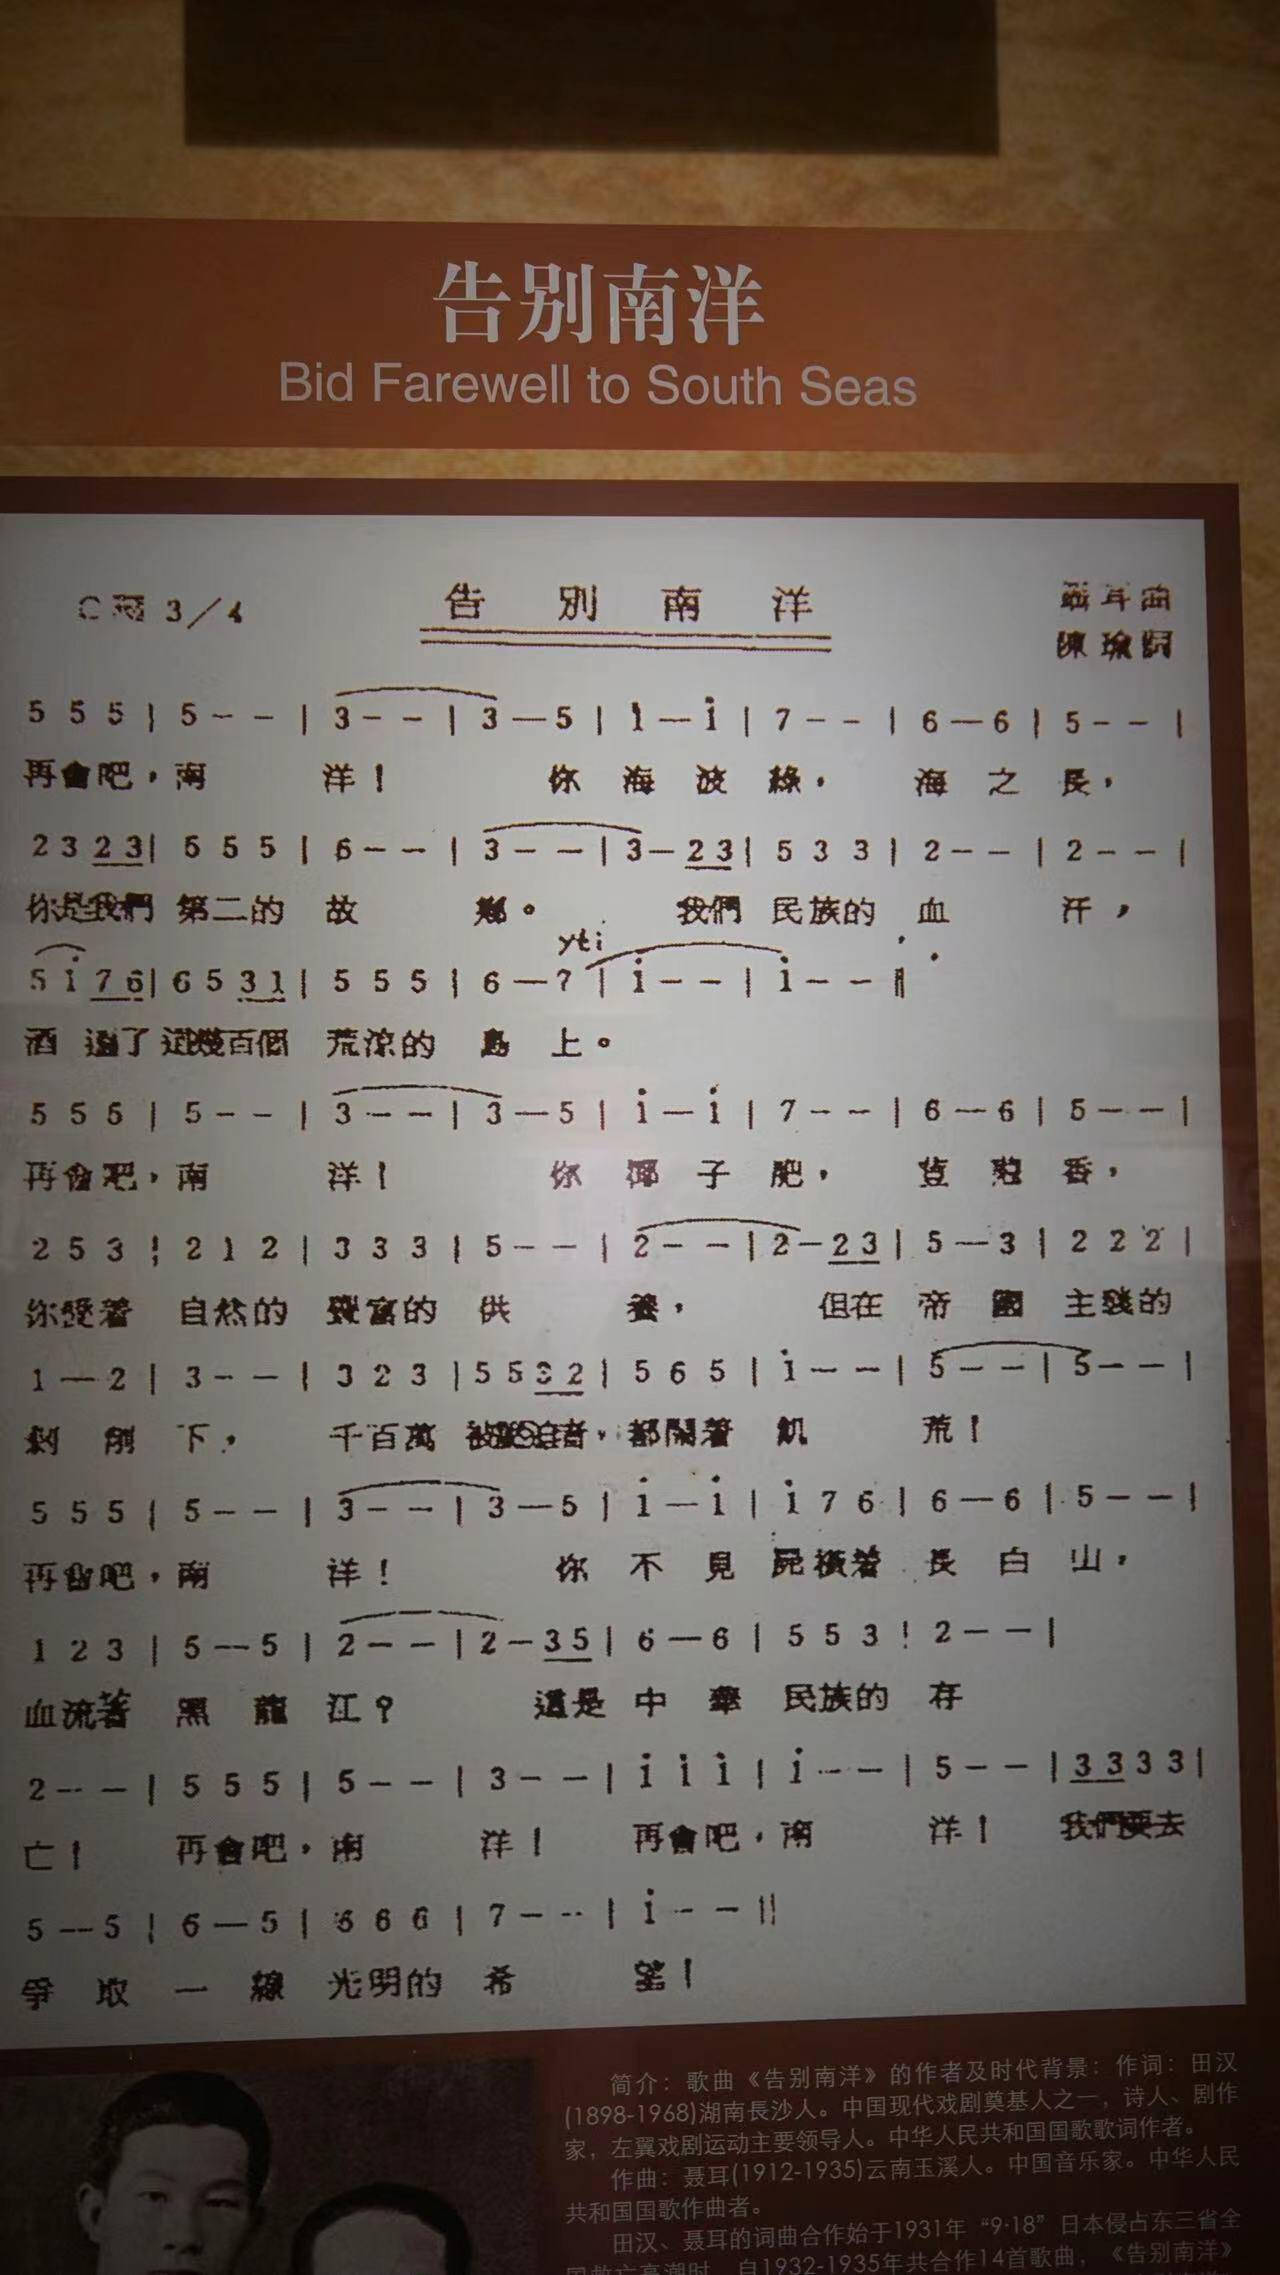 告别南洋
Bid Farewell to South Seas
C 3／4
告 別 南 洋
聶耳曲
陳瑜詞
5 5 5 | 5 - - | 3 - - | 3 — 5 | 1 — i | 7 - - | 6 — 6 | 5 - - |
再會吧，南 洋！ 你 海 波 綠， 海 之 長，
2 3 2 3 | 5 5 5 | 6 - - | 3 - - | 3 — 2 3 | 5 3 3 | 2 - - | 2 - - |
你是我們 第二的 故 鄉。 我們 民族的 血 汗，
yti
5 i 7 6 | 6 5 3 1 | 5 5 5 | 6 — 7 | i - - | i - - ‖
洒 遍了 這幾百個 荒凉的 島 上。
5 5 5 | 5 - - | 3 - - | 3 — 5 | i — i | 7 - - | 6 — 6 | 5 - - |
再會吧，南 洋！ 你 椰 子 肥， 荳 蔻 香，
2 5 3 | 2 1 2 | 3 3 3 | 5 - - | 2 - - | 2 — 2 3 | 5 — 3 | 2 2 2 |
你受着 自然的 豐富的 供 養， 但在 帝 國 主義的
1 — 2 | 3 - - | 3 2 3 | 5 5 3 2 | 5 6 5 | i - - | 5 - - | 5 - - |
剝 削 下， 千百萬 被壓迫者，都鬧着 飢 荒！
5 5 5 | 5 - - | 3 - - | 3 — 5 | i — i | i 7 6 | 6 — 6 | 5 - - |
再會吧，南 洋！ 你 不 見 屍橫着 長 白 山，
1 2 3 | 5 — 5 | 2 - - | 2 — 3 5 | 6 — 6 | 5 5 3 | 2 - - |
血流著 黑 龍 江？ 這是 中 華 民族的 存
2 - - | 5 5 5 | 5 - - | 3 - - | i i i | i - - | 5 - - | 3 3 3 3 |
亡！ 再會吧，南 洋！ 再會吧，南 洋！ 我們要去
5 — 5 | 6 — 5 | 6 6 6 | 7 - - | i - - ‖
爭 取 一 線 光明的 希 望！
简介：歌曲《告别南洋》的作者及时代背景：作词：田汉
(1898-1968)湖南長沙人。中国现代戏剧奠基人之一，诗人、剧作
家，左翼戏剧运动主要领导人。中华人民共和国国歌歌词作者。
作曲：聂耳(1912-1935)云南玉溪人。中国音乐家。中华人民
共和国国歌作曲者。
田汉、聂耳的词曲合作始于1931年“9·18”日本侵占东三省全
国救亡高潮时，自1932-1935年共合作14首歌曲，《告别南洋》